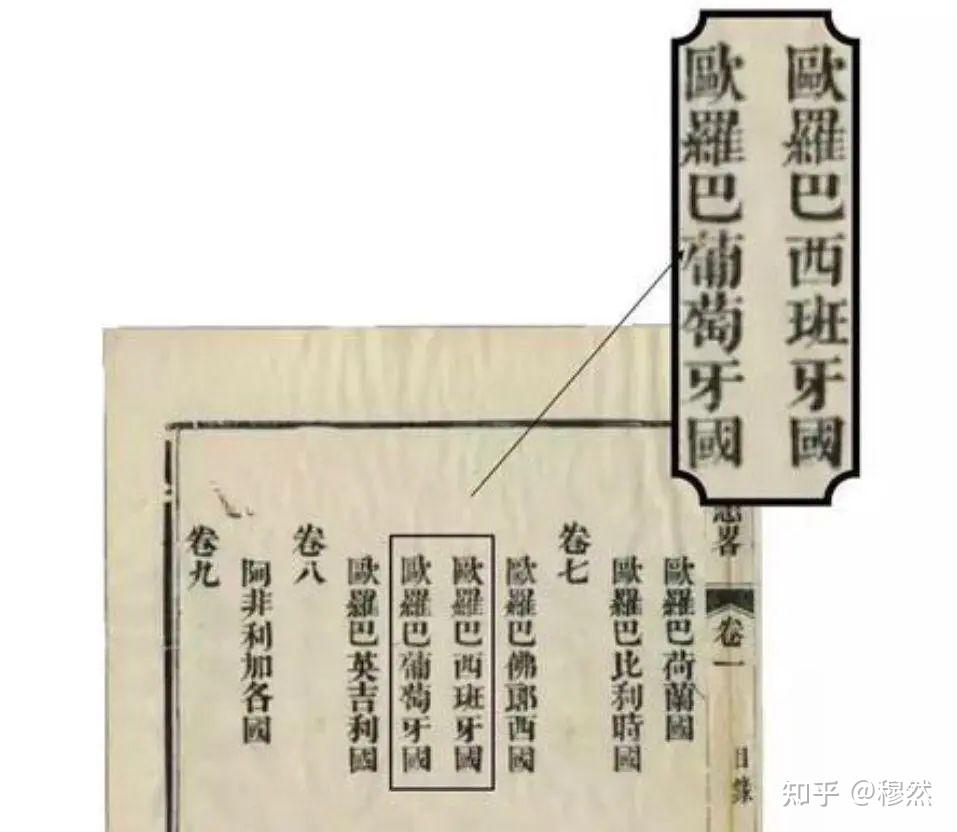 歐羅巴西班牙國
歐羅巴葡萄牙國
志畧
卷一
目錄
歐羅巴荷蘭國
歐羅巴比利時國
卷七
歐羅巴佛郎西國
歐羅巴西班牙國
歐羅巴葡萄牙國
歐羅巴英吉利國
卷八
阿非利加各國
卷九
知乎 @穆然